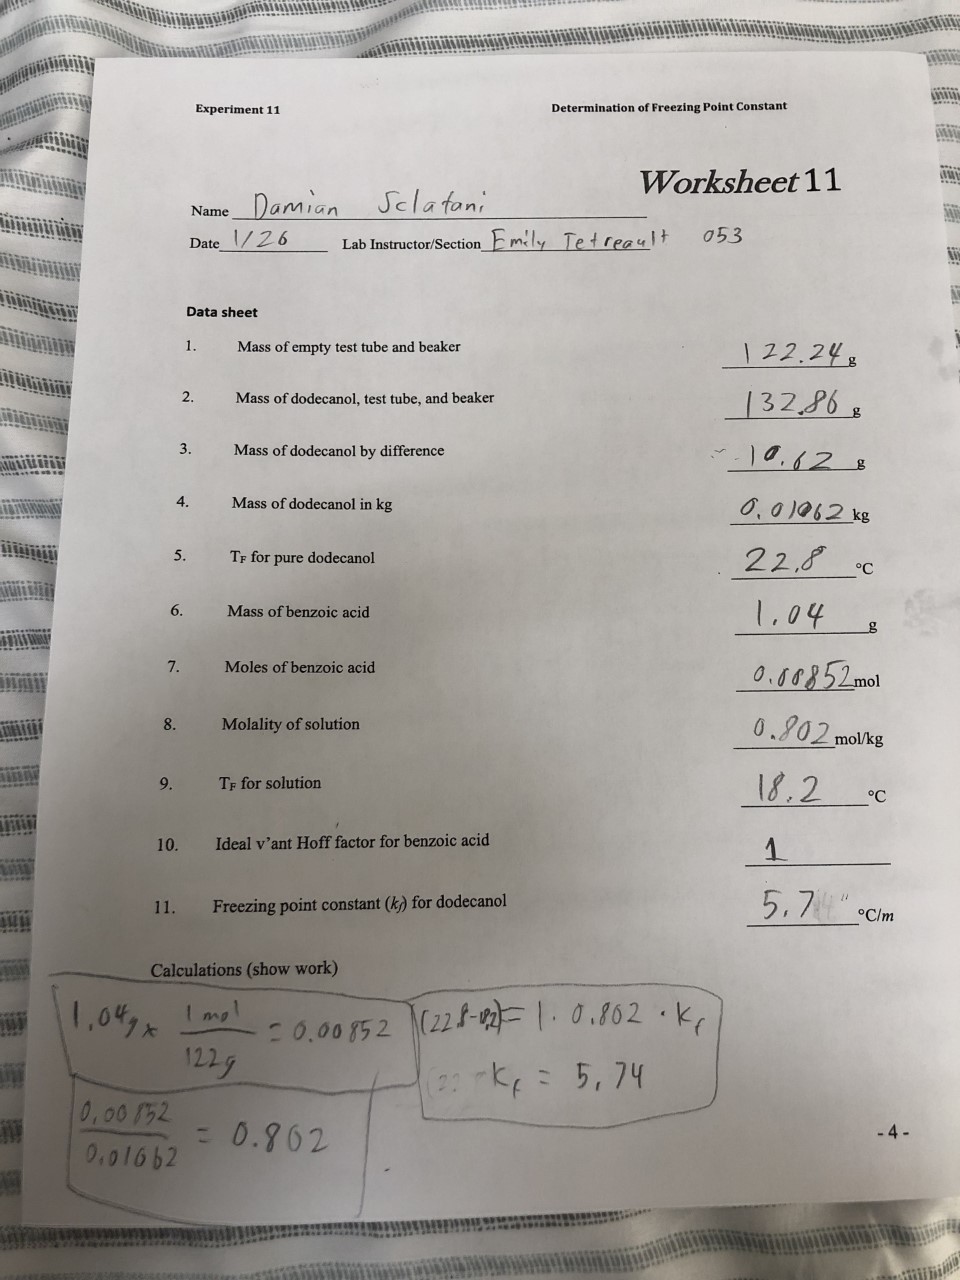 Experiment 11 Determination of Freezing Point Constant
Worksheet 11
Name Damian Sclafani
Date 1/26 Lab Instructor/Section Emily Tetreault 053
Data sheet
1. Mass of empty test tube and beaker 122.24 g
2. Mass of dodecanol, test tube, and beaker 132.86 g
3. Mass of dodecanol by difference 10.62 g
4. Mass of dodecanol in kg 0.01062 kg
5. TF for pure dodecanol 22.8 °C
6. Mass of benzoic acid 1.04 g
7. Moles of benzoic acid 0.00852 mol
8. Molality of solution 0.802 mol/kg
9. TF for solution 18.2 °C
10. Ideal v'ant Hoff factor for benzoic acid 1
11. Freezing point constant (kf) for dodecanol 5.7 °C/m
Calculations (show work)
1.04g x 1 mol / 122g = 0.00852
(22.8-18.2) = 1 · 0.802 · Kf
Kf = 5.74
0.00852 / 0.01062 = 0.802
- 4 -